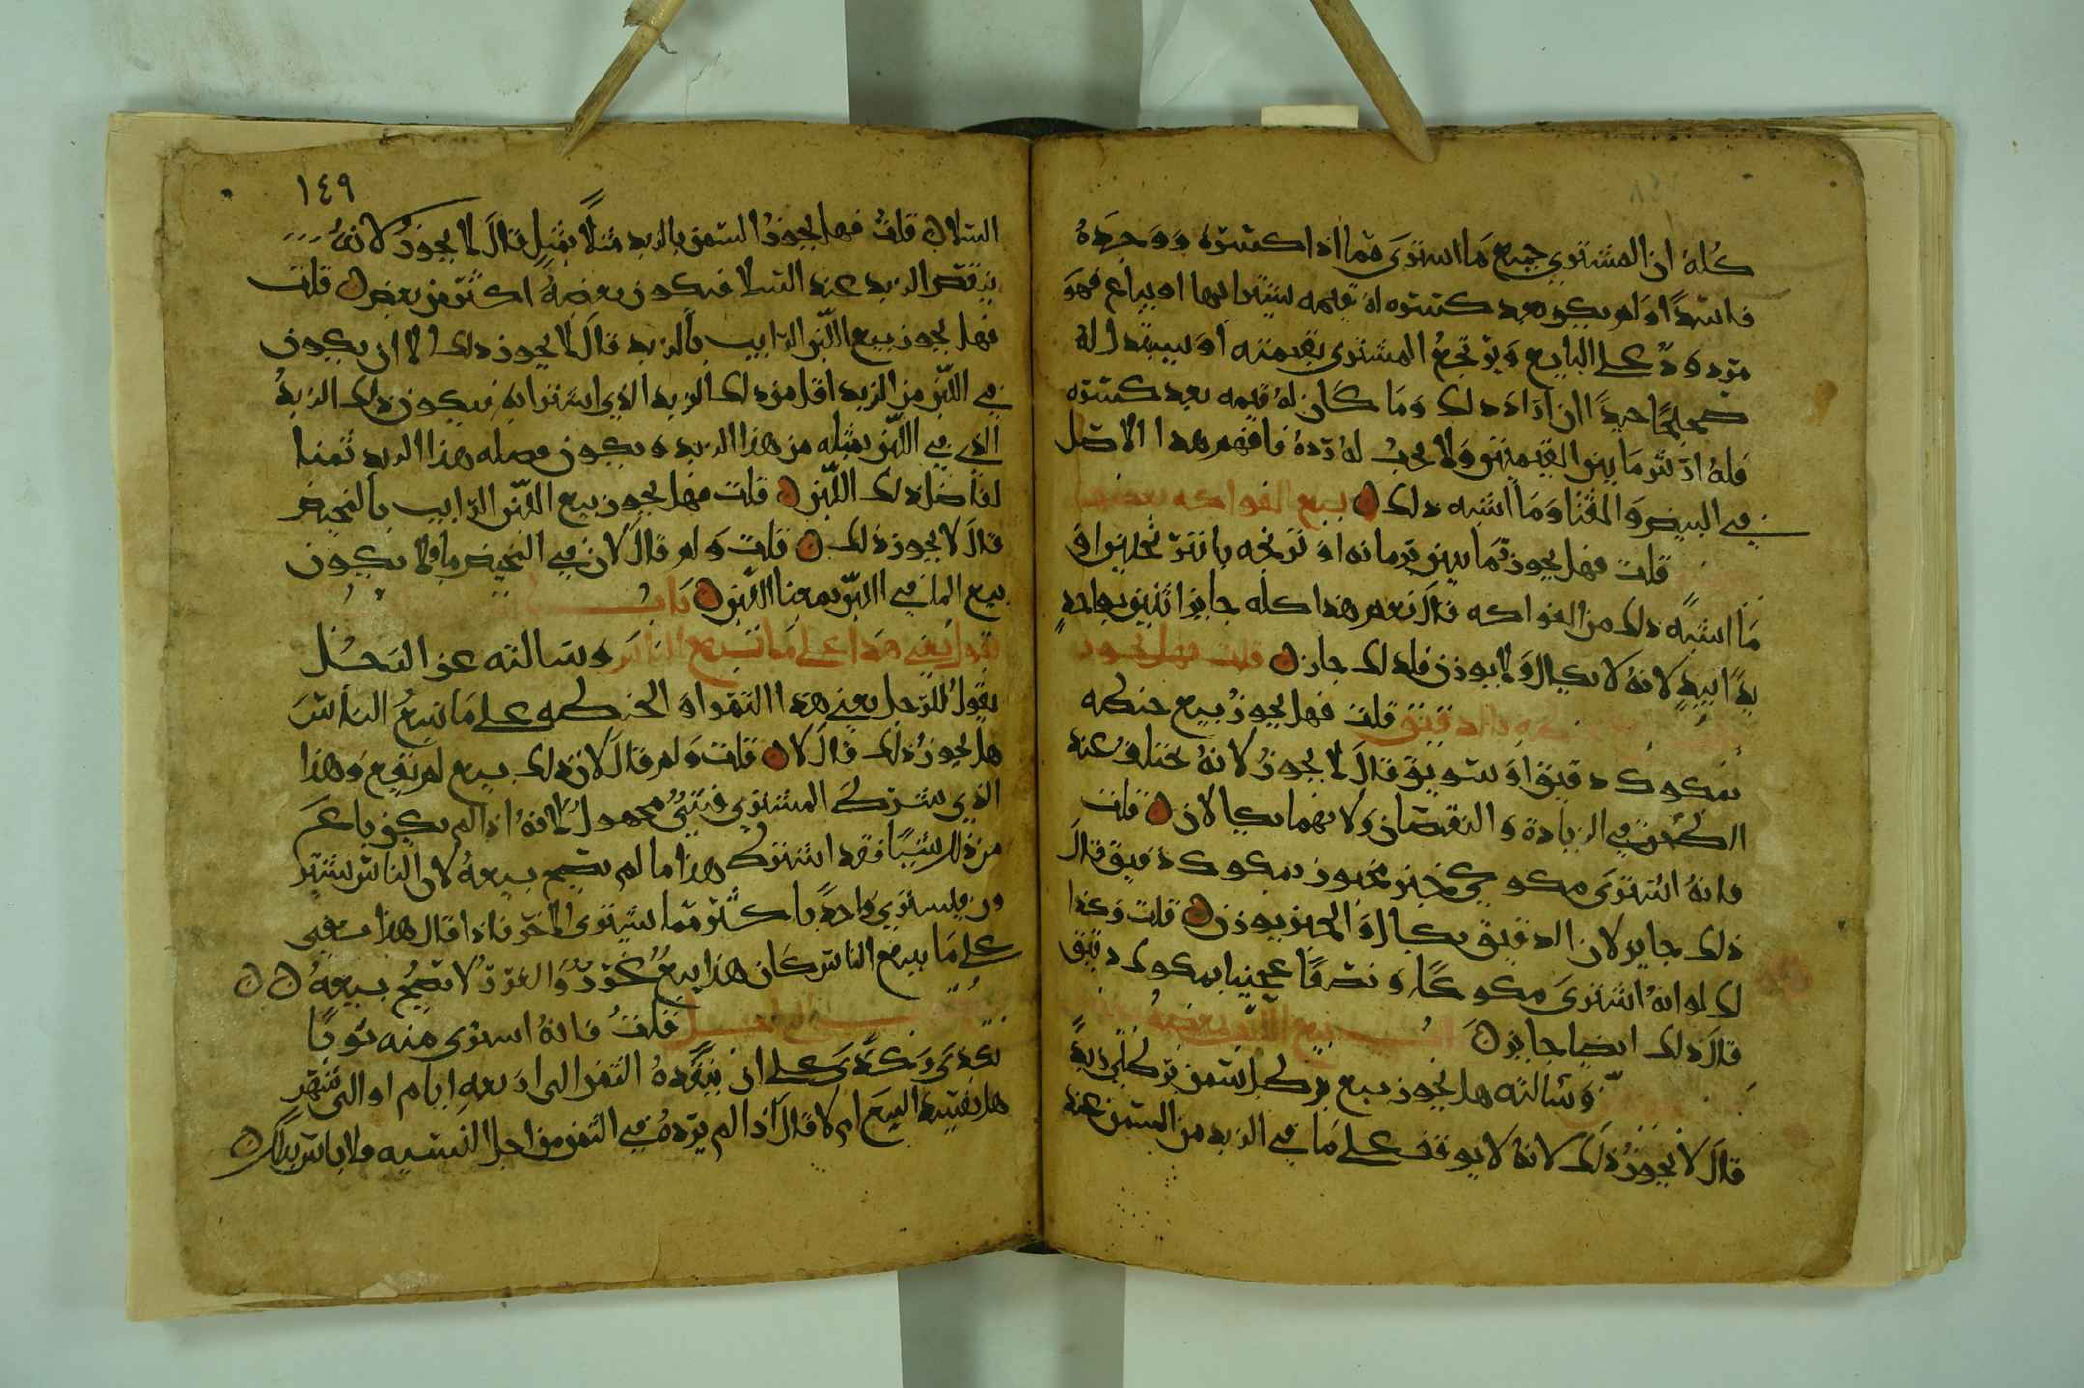 كله ان المشتري جميع ما اشترى مما اذا كسره ووجده
فاسدًا ولم يكن بعد كسره له قيمه يشترا بها او يباع فهو
مردود على البايع ويرتجع المشتري بقيمته او يستبدل له
صحيحًا جيدًا ان اراد ذلك وما كان له قيمه بعد كسره
فله ارش ما بين القيمتين ولا يجب له رده فافهم هذا الاصل
في البيض والقثا وما اشبه ذلك ۞ بيع الفواكه بعضها
قلت فهل يجوز رمانتين برمانه او ترنجه باترنجتين او
ما اشبه ذلك من الفواكه قال نعم هذا كله جايز اثنين بواحد
يدًا بيد لانه لا يكال ولا يوزن فلذلك جاز ۞ قلت فهل يجوز
بالدقيق قلت فهل يجوز بيع حنطه
بمكوك دقيق او سويق قال لا يجوز لانه يختلف عند
الطحن في الزيادة والنقصان ولانهما يكالان ۞ قلت
فانه اشترى مكوكي خبز مخبوز بمكوك دقيق قال
ذلك جايز لان الدقيق يكال والخبز يوزن ۞ قلت وكذا
لك لو انه اشترى مكوكًا ونصفًا عجينا بمكوك دقيق
قال ذلك ايضا جايز ۞ باب بيع اللبن بعضه
وسالته هل يجوز بيع رطل سمن برطلي زبد
قال لا يجوز ذلك لانه لا يوقف على ما في الزبد من السمن عند
١٤٩
السلا ۞ قلت فهل يجوز السمن بالزبد مثلًا بمثل قال لا يجوز لانه
ينقص الزبد عند السلا فيكون بعضه اكثر من بعض ۞ قلت
فهل يجوز بيع اللبن الرايب بالزبد قال لا يجوز ذلك الا ان يكون
في اللبن من الزبد اقل من ذلك الزبد الذي اشترا به فيكون ذلك الزبد
الذي في اللبن بمثله من هذا الزبد ويكون فضله هذا الزبد ثمنا
لفاضل ذلك اللبن ۞ قلت فهل يجوز بيع اللبن الرايب بالمخيض
قال لا يجوز ذلك ۞ قلت ولم قال لان في المخيض ما فلا يكون
بيع الما في اللبن بمعنا اللبن ۞ باب
قول بعني هذا على ما تبيع الناس وسالته عن الرجل
يقول للرجل بعني هذا التمر او الحنطه على ما تبيع الناس
هل يجوز ذلك قال لا ۞ قلت ولم قال لان ذلك بيع لم يقع وهذا
الذي شرط المشتري فشيء مجهول لانه اذا لم يكن باع
من ذلك شيًا فقد اشترط هذا ما لم يصح بيعه لان الناس يشتر
ون فيشتري واحد باكثر مما يشترى الاخر فاذا قال هذا بعني
على ما تبيع الناس كان هذا بيع غرر والغرر لا يصح بيعه ۞۞
قلت فانه اشترى منه ثوبًا
بكذى وكذى على ان ينقده الثمن الى اربعه ايام او الى شهر
هل يفسد البيع ام لا قال اذا لم يزده في الثمن من اجل النسيه فلا باس بذلك ۞